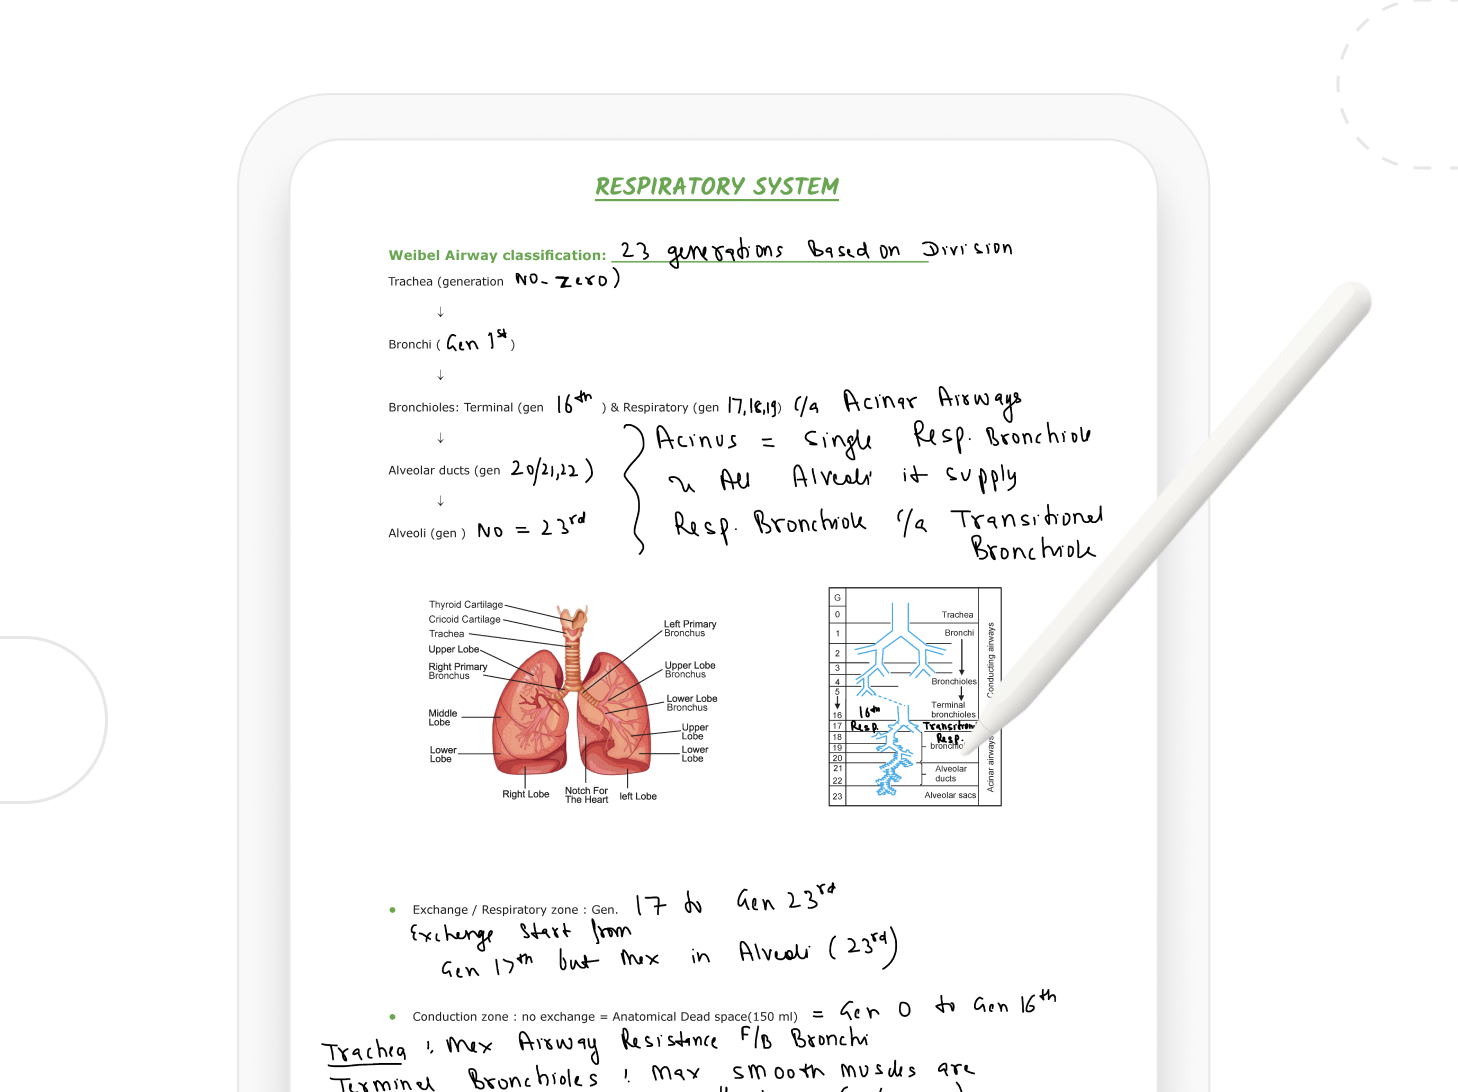 RESPIRATORY SYSTEM
Weibel Airway classification: 23 generations Based on Division
Trachea (generation No- zero)
↓
Bronchi ( Gen 1st )
↓
Bronchioles: Terminal (gen 16th ) & Respiratory (gen 17,18,19) c/a Acinar Airways
↓
Acinus = single Resp. Bronchiole
Alveolar ducts (gen 20/21,22 )
All Alveoli it supply
↓
Resp. Bronchiole c/a Transitional
Bronchiole
Alveoli (gen ) No = 23rd
Thyroid Cartilage
Cricoid Cartilage
Trachea
Upper Lobe
Right Primary
Bronchus
Middle
Lobe
Lower
Lobe
Right Lobe
Notch For
The Heart
left Lobe
Left Primary
Bronchus
Upper Lobe
Bronchus
Lower Lobe
Bronchus
Upper
Lobe
Lower
Lobe
G
0 Trachea
1 Bronchi
2
3
4 Bronchioles
5
Terminal
16 16th bronchioles
17 Resp. Transition
18 Resp.
19
20
21 Alveolar
22 ducts
23 Alveolar sacs
Conducting airways
Acinar airways
• Exchange / Respiratory zone : Gen. 17 to Gen 23rd
Exchange start from
Gen 17th but Max in Alveoli (23rd)
• Conduction zone : no exchange = Anatomical Dead space(150 ml) = Gen 0 to Gen 16th
Trachea : Max Airway Resistance F/B Bronchi
Terminal Bronchioles : Max smooth muscles are